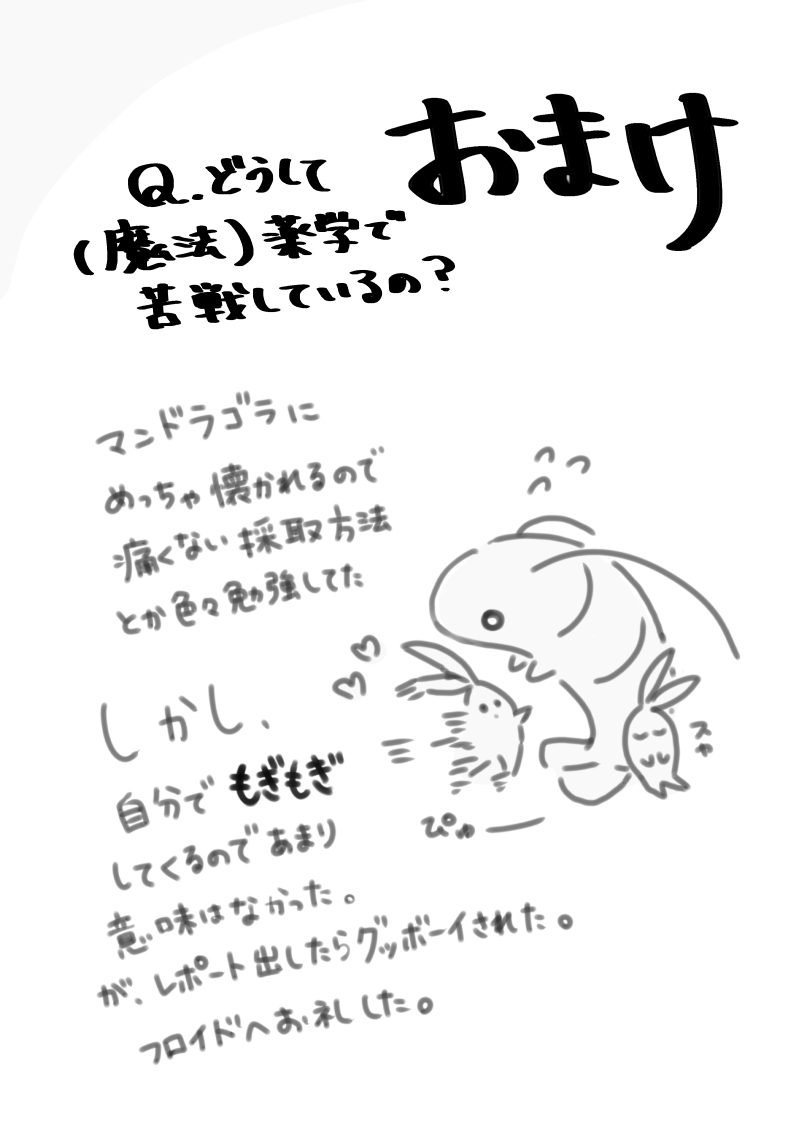 おまけ
Q.どうして
(魔法)薬学で
苦戦しているの？
マンドラゴラに
めっちゃ懐かれるので
痛くない採取方法
とか色々勉強してた
しかし、
自分でもぎもぎ
してくるのであまり
意味はなかった。
が、レポート出したらグッボーイされた。
フロイドへお礼した。
スヤ
ぴゅー